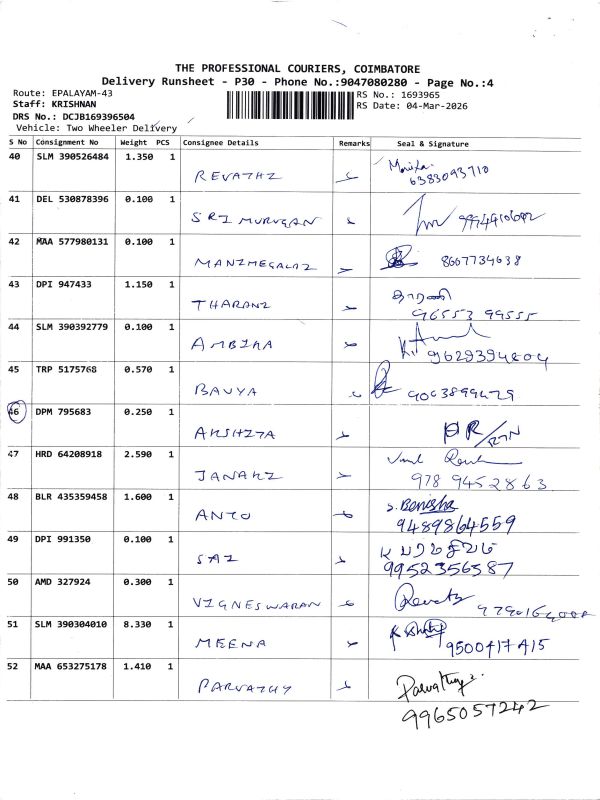 THE PROFESSIONAL COURIERS, COIMBATORE
Delivery Runsheet - P30 - Phone No.:9047080280 - Page No.:4
Route: EPALAYAM-43
Staff: KRISHNAN
DRS No.: DCJB169396504
Vehicle: Two Wheeler Delivery
RS No.: 1693965
RS Date: 04-Mar-2026
S No Consignment No Weight PCS Consignee Details Remarks Seal & Signature
40 SLM 390526484 1.350 1
REVATHI 6383093710
41 DEL 530878396 0.100 1
SRI MURUGAN
42 MAA 577980131 0.100 1
MANIMEGALAI 8667734638
43 DPI 947433 1.150 1
THARANI தாரணி
96553 99555
44 SLM 390392779 0.100 1
AMBIKA 9629394804
45 TRP 5175768 0.570 1
BAVYA 9063899429
46 DPM 795683 0.250 1
AKSHITA
47 HRD 64208918 2.590 1
JANAKI 978 9452863
48 BLR 435359458 1.600 1
ANTO S. Benisha
9489864559
49 DPI 991350 0.100 1
SAI 9952356587
50 AMD 327924 0.300 1
VIGNESWARAN
51 SLM 390304010 8.330 1
MEENA 9500417415
52 MAA 653275178 1.410 1
PARVATHY Parvathy
9965057242